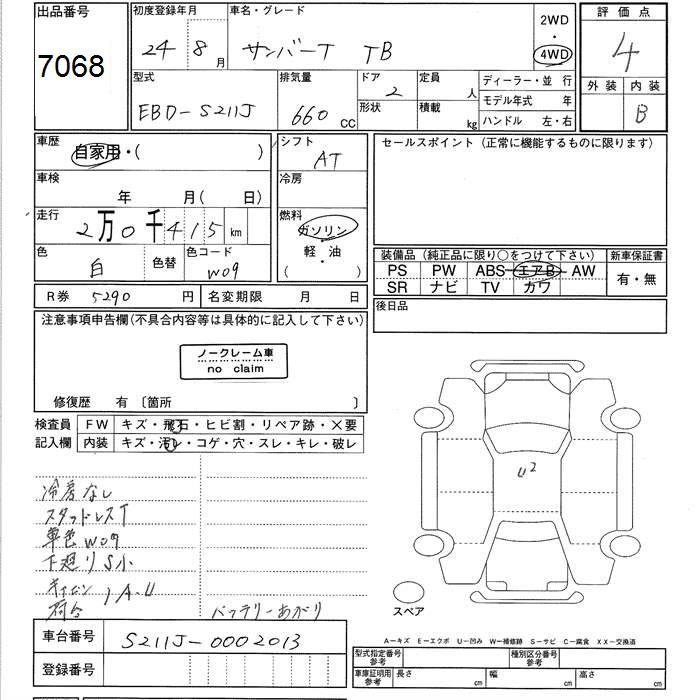 出品番号
7068
初度登録年月
24 8 月
車名・グレード
サンバーT TB
2WD
・
4WD
評価点
4
外装 内装
B
型式
EBD-S211J
排気量
660 CC
ドア
2
形状
定員
人
積載
kg
ディーラー・並 行
モデル年式 年
ハンドル 左・右
車歴
自家用・( )
シフト
AT
セールスポイント (正常に機能するものに限ります)
車検
年 月( 日)
冷房
走行
2万0千415km
燃料
ガソリン
軽・油
( )
色
白
色替
色コード
W09
装備品 (純正品に限り○をつけて下さい)
PS PW ABS エアB AW
SR ナビ TV カワ
新車保証書
有・無
R券 5290 円
名変期限 月 日
後日品
注意事項申告欄(不具合内容等は具体的に記入して下さい)
ノークレーム車
no claim
修復歴 有 〔箇所 〕
検査員
記入欄
FW キズ・飛石・ヒビ割・リペア跡・×要
内装 キズ・汚レ・コゲ・穴・スレ・キレ・破レ
冷房なし
スタッドレスT
単色W09
下廻りS小
キャビン
荷台 )A.U
バッテリーあがり
U2
スペア
A－キズ E－エクボ U－凹み W－補修跡 S－サビ C－腐食 XX－交換済
車台番号
S211J-0002013
登録番号
型式指定番号
参考
種別区分番号
参考
車庫証明用
参考
長さ cm
幅 cm
高さ cm